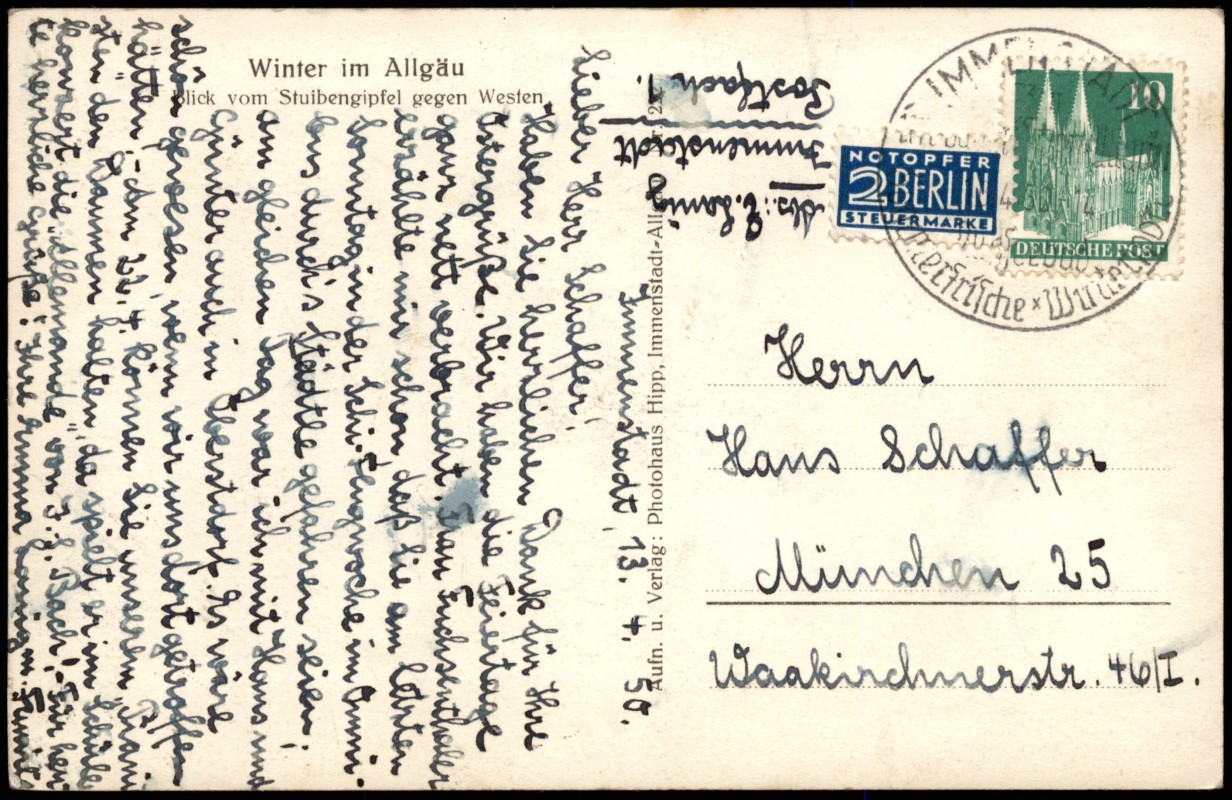 Winter im Allgäu
Blick vom Stuibengipfel gegen Westen
Aufn. u. Verlag: Photohaus Hipp, Immenstadt-Allg.
Immenstadt, 13. 4. 50.
Lieber Herr Schaffer,
Haben Sie herzlichen Dank für Ihre
Ostergrüße. Wir haben die Feiertage
ganz nett verbracht. Frau Fuchsenthaler
erzählte mir schon daß Sie am letzten
Sonntag in der Schi-Jengasche im Omni-
bus durch's Städtle gefahren seien;
am gleichen Tag war ich mit Hans und
Günter auch in Oberstdorf. Es wäre
schön gewesen, wenn wir uns dort getroffen
hätten. Am 23. 4. können Sie unseren "Hansi
sten" den Daumen halten, da spielt er im Schüler-
konzert die "Allemande" von J. S. Bach! Für heu-
te herzliche Grüße! Ihre Anna Lanig m. Familie
Abs.: E. Lanig
Immenstadt
Postfach 1.
IMMENSTADT
NOTOPFER
2 BERLIN
STEUERMARKE
10
DEUTSCHE POST
Herrn
Hans Schaffer
München 25
Waakirchnerstr. 46/I.